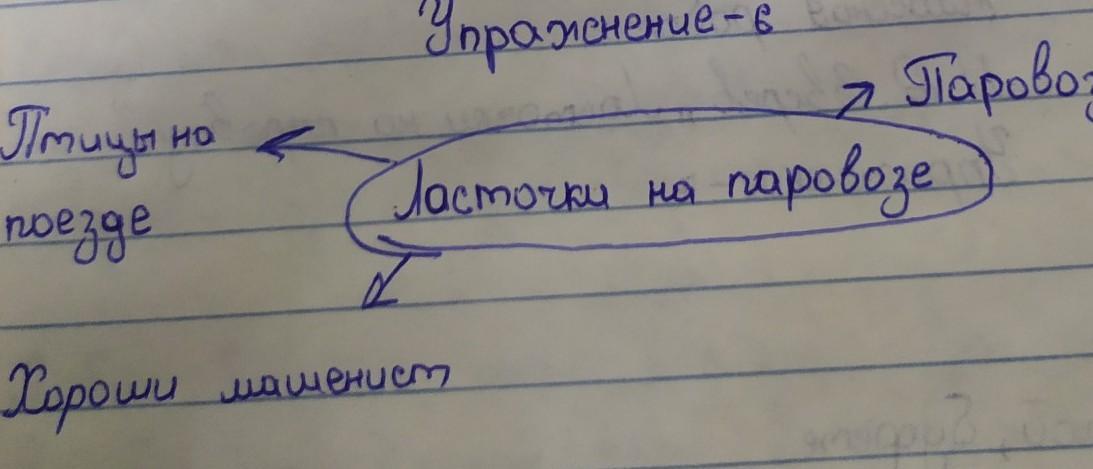 Упражнение-6
Паровоз
Птицы на
Ласточки на паровозе
поезде
Хороши машенист